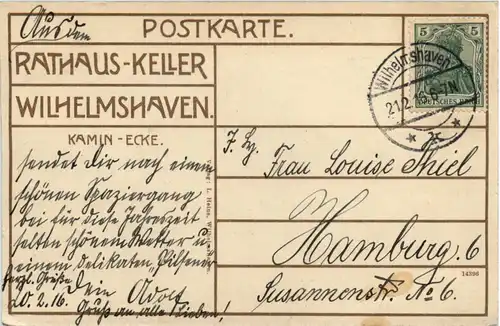 Aus dem
POSTKARTE.
RATHAUS-KELLER
WILHELMSHAVEN.
KAMIN-ECKE.
sendet Dir nach einem
schönen Spaziergang
bei für diese Jahreszeit
selten schönem Wetter u.
einem delikaten „Pilsener"
herzl. Grüße Dein Adolf
20.2.16. Gruß an alle Lieben!
5
DEUTSCHES REICH
Wilhelmshaven
21.2.16.6-7N
* 2 *
Frau Louise Thiel
Hamburg. 6
14396
Susannenstr. No 6.